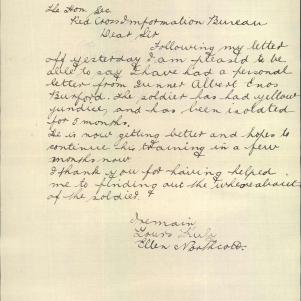 The Hon Sec
Red Cross Information Bureau
Dear Sir
Following my letter
off yesterday I am pleasid to be
able to say I have had a personal
letter from Gunner Albert Enos
Burford. The soldier has had yellow
jundice, and has been isolated
for 5 months.
He is now getting better and hopes to
continue his training in a few
months now
I thank you for having helped
me to finding out the whereabouts
of the soldier. &
I remain
Yours Truly
Ellen Northcott.